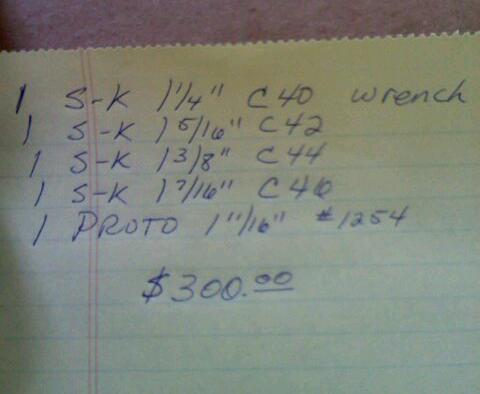 1 S-K 1 1/4" C 40 wrench
1 S-K 1 5/16" C 42
1 S-K 1 3/8" C 44
1 S-K 1 7/16" C 46
1 PROTO 1 11/16" #1254
$300.00